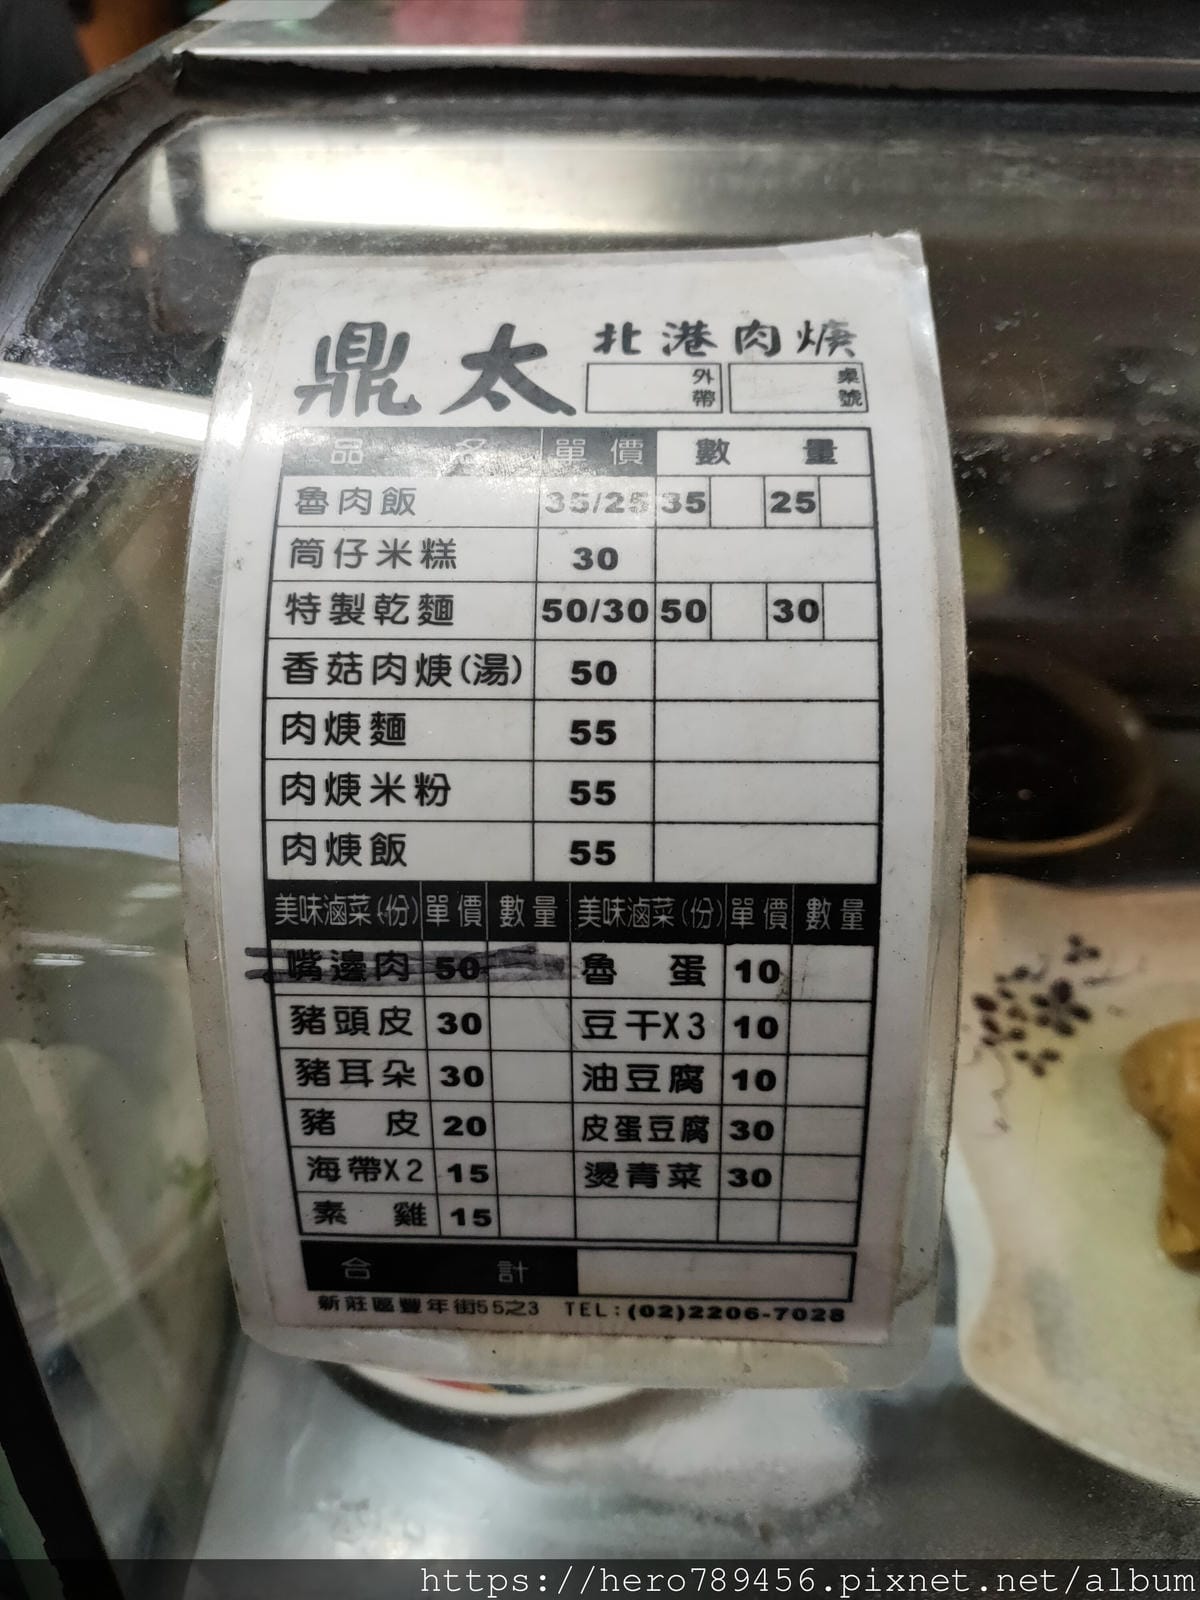 鼎太 北港肉焿
外帶 桌號
品名 單價 數量
魯肉飯 35/25 35 25
筒仔米糕 30
特製乾麵 50/30 50 30
香菇肉焿(湯) 50
肉焿麵 55
肉焿米粉 55
肉焿飯 55
美味滷菜(份) 單價 數量 美味滷菜(份) 單價 數量
嘴邊肉 50 魯蛋 10
豬頭皮 30 豆干X3 10
豬耳朵 30 油豆腐 10
豬皮 20 皮蛋豆腐 30
海帶X2 15 燙青菜 30
素雞 15
合計
新莊區豐年街55之3 TEL:(02)2206-7028
https://hero789456.pixnet.net/album